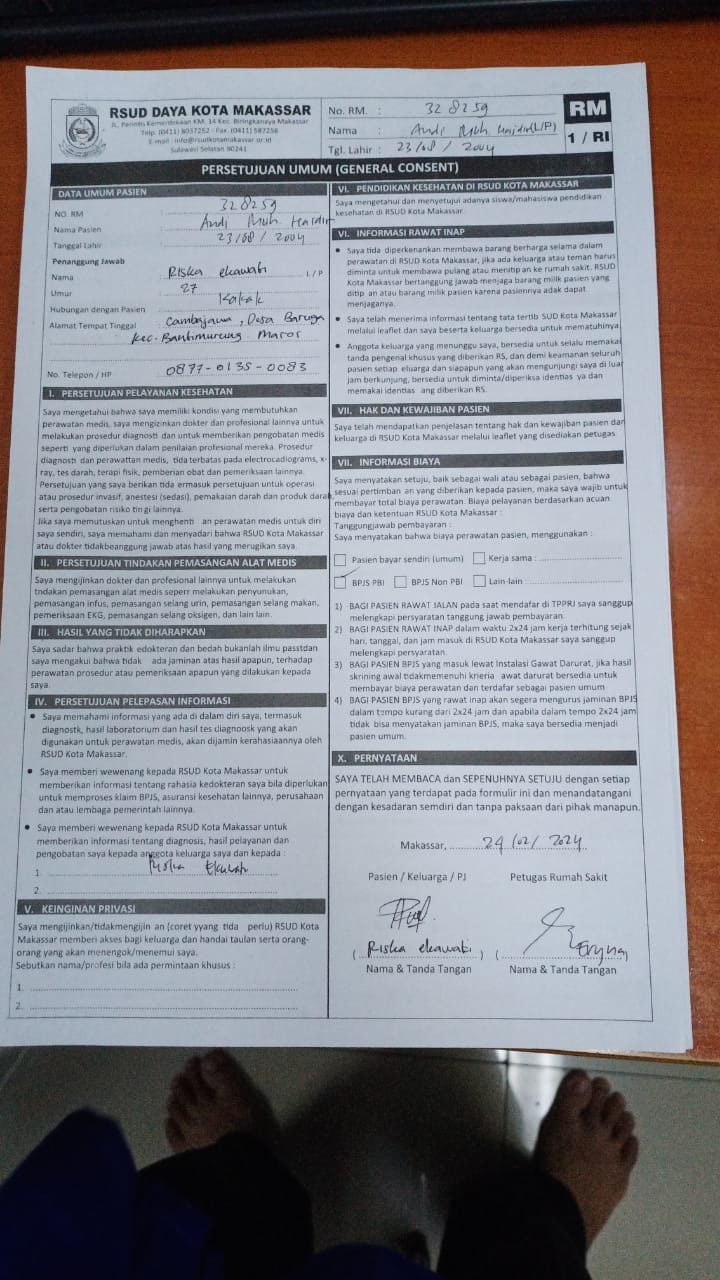 RSUD DAYA KOTA MAKASSAR
JL. Perintis Kemerdekaan KM. 14 Kec. Biringkanaya Makassar
Telp. (0411) 8037252 - Fax. (0411) 587256
E-mail : info@rsudkotamakassar.or.id
Sulawesi Selatan 90241
No. RM. : 328259
Nama : Andi Muh Haidir (L/P)
Tgl. Lahir : 23/08/2004
RM
1 / RI
PERSETUJUAN UMUM (GENERAL CONSENT)
DATA UMUM PASIEN
NO. RM : 328259
Nama Pasien : Andi Muh Haidir
Tanggal Lahir : 23/08/2004
Penanggung Jawab
Nama : Riska ekawati L/P
Umur : 27
Hubungan dengan Pasien : Kakak
Alamat Tempat Tinggal : Cambajawa, Desa Baruga
Kec. Bantimurung Maros
No. Telepon / HP : 0877-0135-0083
I. PERSETUJUAN PELAYANAN KESEHATAN
Saya mengetahui bahwa saya memiliki kondisi yang membutuhkan
perawatan medis, saya mengizinkan dokter dan profesional lainnya untuk
melakukan prosedur diagnosti dan untuk memberikan pengobatan medis
seperti yang diperlukan dalam penilaian profesional mereka. Prosedur
diagnosti dan perawattan medis, tida terbatas pada electrocadiograms, x-
ray, tes darah, terapi fisik, pemberian obat dan pemeriksaan lainnya.
Persetujuan yang saya berikan tida ermasuk persetujuan untuk operasi
atau prosedur invasif, anestesi (sedasi), pemakaian darah dan produk darah
serta pengobatan risiko tin gi lainnya.
Jika saya memutuskan untuk menghenti an perawatan medis untuk diri
saya sendiri, saya memahami dan menyadari bahwa RSUD Kota Makassar
atau dokter tidakbeanggung jawab atas hasil yang merugikan saya.
II. PERSETUJUAN TINDAKAN PEMASANGAN ALAT MEDIS
Saya mengijinkan dokter dan profesional lainnya untuk melakukan
tndakan pemasangan alat medis seperr melakukan penyunukan,
pemasangan infus, pemasangan selang urin, pemasangan selang makan,
pemeriksaan EKG, pemasangan selang oksigen, dan lain lain.
III. HASIL YANG TIDAK DIHARAPKAN
Saya sadar bahwa praktik edokteran dan bedah bukanlah ilmu passtdan
saya mengakui bahwa tidak ada jaminan atas hasil apapun, terhadap
perawatan prosedur atau pemeriksaan apapun yang dilakukan kepada
saya.
IV. PERSETUJUAN PELEPASAN INFORMASI
• Saya memahami informasi yang ada di dalam diri saya, termasuk
diagnostk, hasil laboratorium dan hasil tes diagnoosk yang akan
digunakan untuk perawatan medis, akan dijamin kerahasiaannya oleh
RSUD Kota Makassar.
• Saya memberi wewenang kepada RSUD Kota Makassar untuk
memberikan informasi tentang rahasia kedokteran saya bila diperlukan
untuk memproses klaim BPJS, asuransi kesehatan lainnya, perusahaan
dan atau lembaga pemerintah lainnya.
• Saya memberi wewenang kepada RSUD Kota Makassar untuk
memberikan informasi tentang diagnosis, hasil pelayanan dan
pengobatan saya kepada anggota keluarga saya dan kepada :
1. Riska Ekawati
2.
V. KEINGINAN PRIVASI
Saya mengijinkan/tidakmengijin an (coret yyang tida perlu) RSUD Kota
Makassar memberi akses bagi keluarga dan handai taulan serta orang-
orang yang akan menengok/menemui saya.
Sebutkan nama/profesi bila ada permintaan khusus :
1.
2.
VI. PENDIDIKAN KESEHATAN DI RSUD KOTA MAKASSAR
Saya mengetahui dan menyetujui adanya siswa/mahasiswa pendidikan
kesehatan di RSUD Kota Makassar.
VI. INFORMASI RAWAT INAP
• Saya tida diperkenankan membawa barang berharga selama dalam
perawatan di RSUD Kota Makassar, jika ada keluarga atau teman harus
diminta untuk membawa pulang atau menitip an ke rumah sakit. RSUD
Kota Makassar bertanggung jawab menjaga barang milik pasien yang
ditip an atau barang milik pasien karena pasiennya adak dapat
menjaganya.
• Saya telah menerima informasi tentang tata tertib SUD Kota Makassar
melalui leaflet dan saya beserta keluarga bersedia untuk mematuhinya.
• Anggota keluarga yang menunggu saya, bersedia untuk selalu memakai
tanda pengenal khusus yang diberikan RS, dan demi keamanan seluruh
pasien setip eluarga dan siapapun yang akan mengunjungi saya di luar
jam berkunjung, bersedia untuk diminta/diperiksa identias ya dan
memakai identias ang diberikan RS.
VII. HAK DAN KEWAJIBAN PASIEN
Saya telah mendapatkan penjelasan tentang hak dan kewajiban pasien dan
keluarga di RSUD Kota Makassar melalui leaflet yang disediakan petugas.
VII. INFORMASI BIAYA
Saya menyatakan setuju, baik sebagai wali atau sebagai pasien, bahwa
sesuai pertimban an yang diberikan kepada pasien, maka saya wajib untuk
membayar total biaya perawatan. Biaya pelayanan berdasarkan acuan
biaya dan ketentuan RSUD Kota Makassar :
Tanggungjawab pembayaran :
Saya menyatakan bahwa biaya perawatan pasien, menggunakan :
Pasien bayar sendiri (umum) Kerja sama :
BPJS PBI BPJS Non PBI Lain-lain :
1) BAGI PASIEN RAWAT JALAN pada saat mendafar di TPPRJ saya sanggup
melengkapi persyaratan tanggung jawab pembayaran.
2) BAGI PASIEN RAWAT INAP dalam waktu 2x24 jam kerja terhitung sejak
hari, tanggal, dan jam masuk di RSUD Kota Makassar saya sanggup
melengkapi persyaratan.
3) BAGI PASIEN BPJS yang masuk lewat Instalasi Gawat Darurat, jika hasil
skrining awal tidakmemenuhi krieria awat darurat bersedia untuk
membayar biaya perawatan dan terdafar sebagai pasien umum
4) BAGI PASIEN BPJS yang rawat inap akan segera mengurus jaminan BPJS
dalam tempo kurang dari 2x24 jam dan apabila dalam tempo 2x24 jam
tidak bisa menyatakan jaminan BPJS, maka saya bersedia menjadi
pasien umum.
X. PERNYATAAN
SAYA TELAH MEMBACA dan SEPENUHNYA SETUJU dengan setiap
pernyataan yang terdapat pada formulir ini dan menandatangani
dengan kesadaran semdiri dan tanpa paksaan dari pihak manapun.
Makassar, 24/02/2024
Pasien / Keluarga / PJ Petugas Rumah Sakit
( Riska ekawati ) ( )
Nama & Tanda Tangan Nama & Tanda Tangan